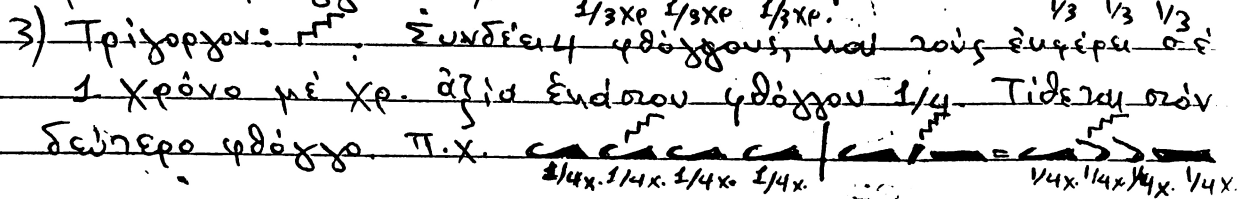 1/3χρ 1/3χρ 1/3χρ. 1/3 1/3 1/3
3) Τρίγοργον: . Συνδέει 4 φθόγγους, καί τούς ἐκφέρει σέ
1 χρόνο μέ χρ. ἀξία ἑκάστου φθόγγου 1/4. Τίθεται στόν
δεύτερο φθόγγο. π.χ. | =
1/4χ. 1/4χ. 1/4χ. 1/4χ. 1/4χ. 1/4χ. 1/4χ. 1/4χ.